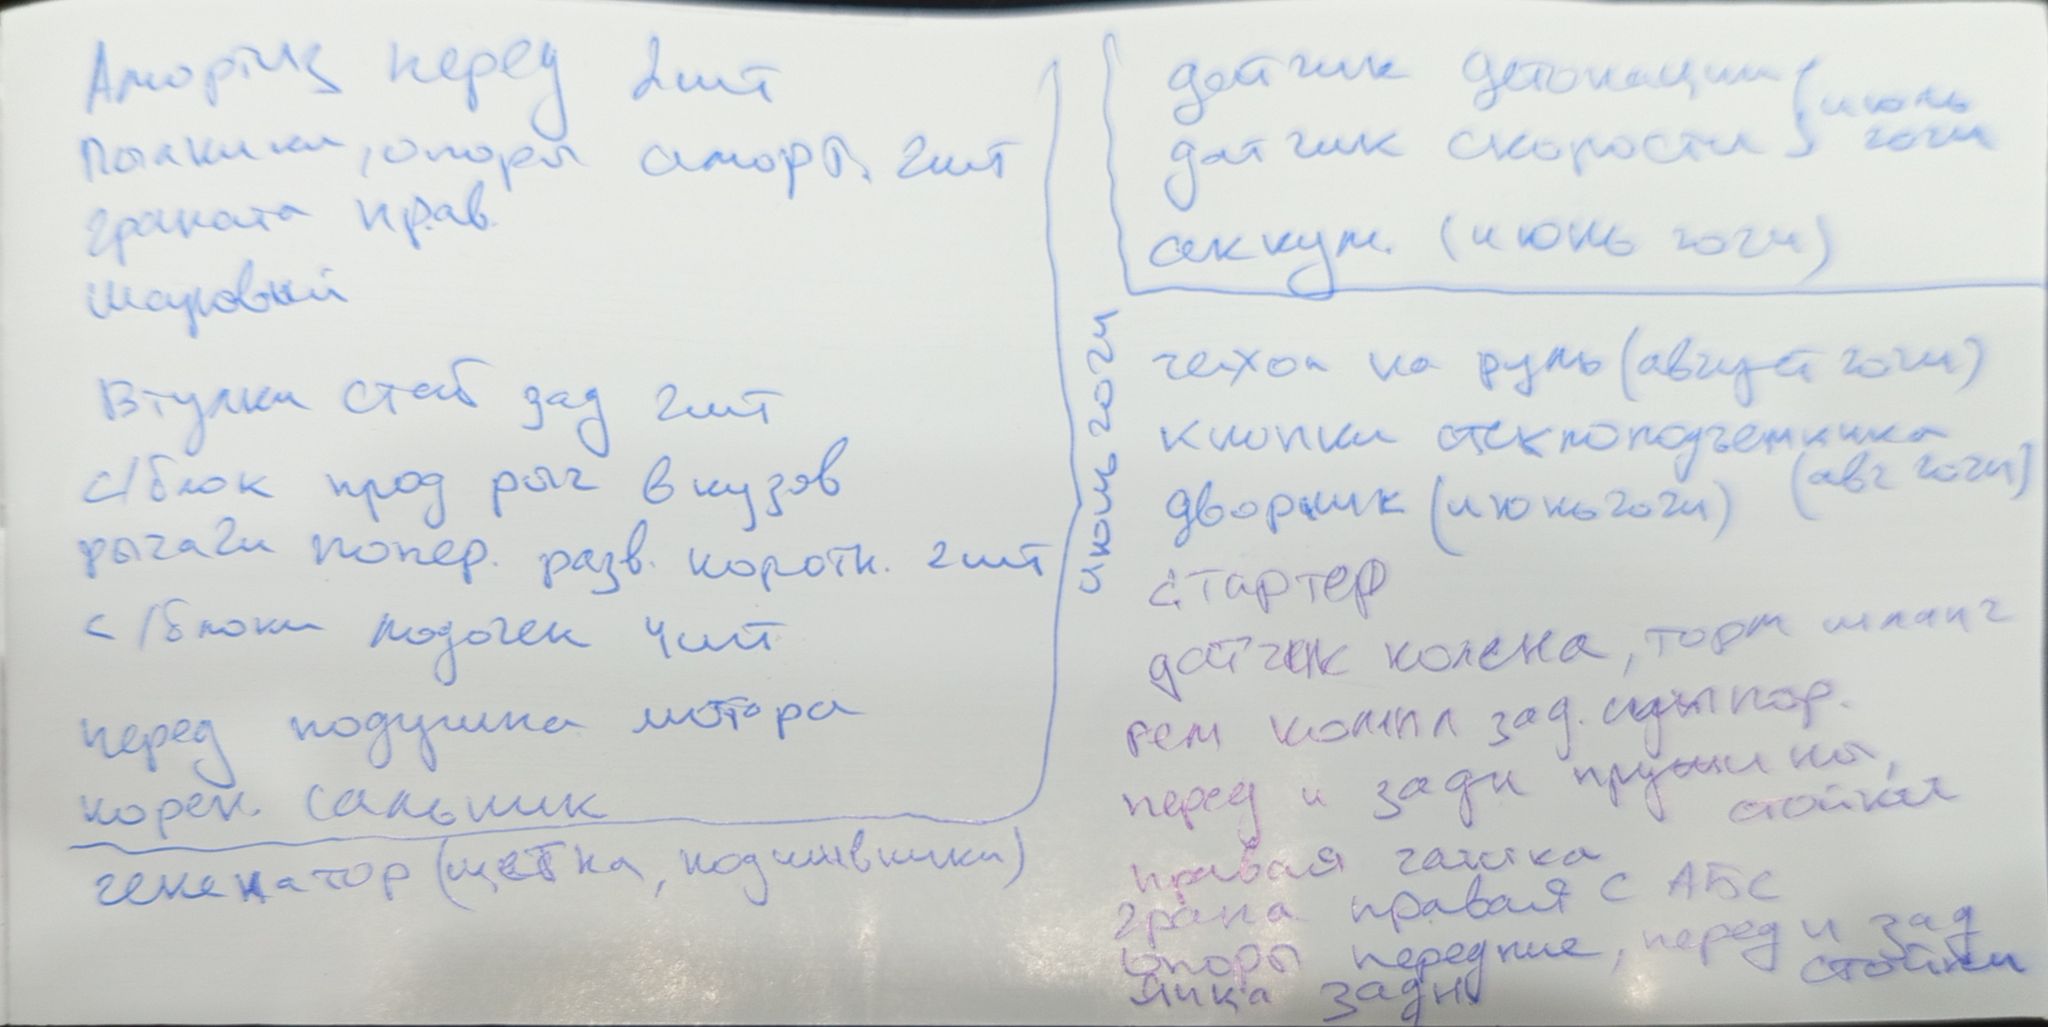 Амортиз перед 2шт
Пыльники, опоры аморт. 2шт
граната прав.
шаровый
Втулки стаб зад 2шт
с/блок прод рыч в кузов
рычаги попер. разв. коротк. 2шт
с/блоки лодочек 4шт
перед подушка мотора
корен. сальник
июль 2024
генератор (щетка, подшивники)
датчик детонации } июнь
датчик скорости } 2024
аккум. (июнь 2024)
чехол на руль (август 2024)
кнопки стеклоподъемника
(авг 2024)
дворник (июнь 2024)
стартер
датчик колена, торм шланг
рем компл зад. суппор.
перед и задн пружины,
стойки
правая гайка
грана правая с АБС
опоры передние, перед и зад
стойки
яйца задн